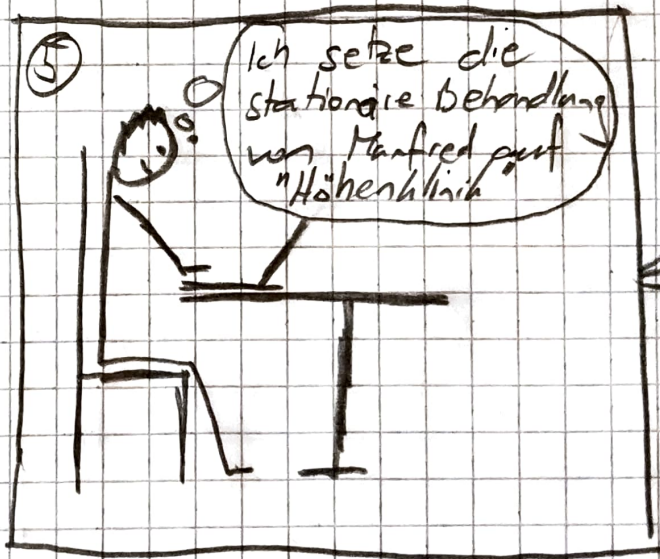 5
Ich setze die
stationäre Behandlung
von Manfred auf
"Höhenklinik"